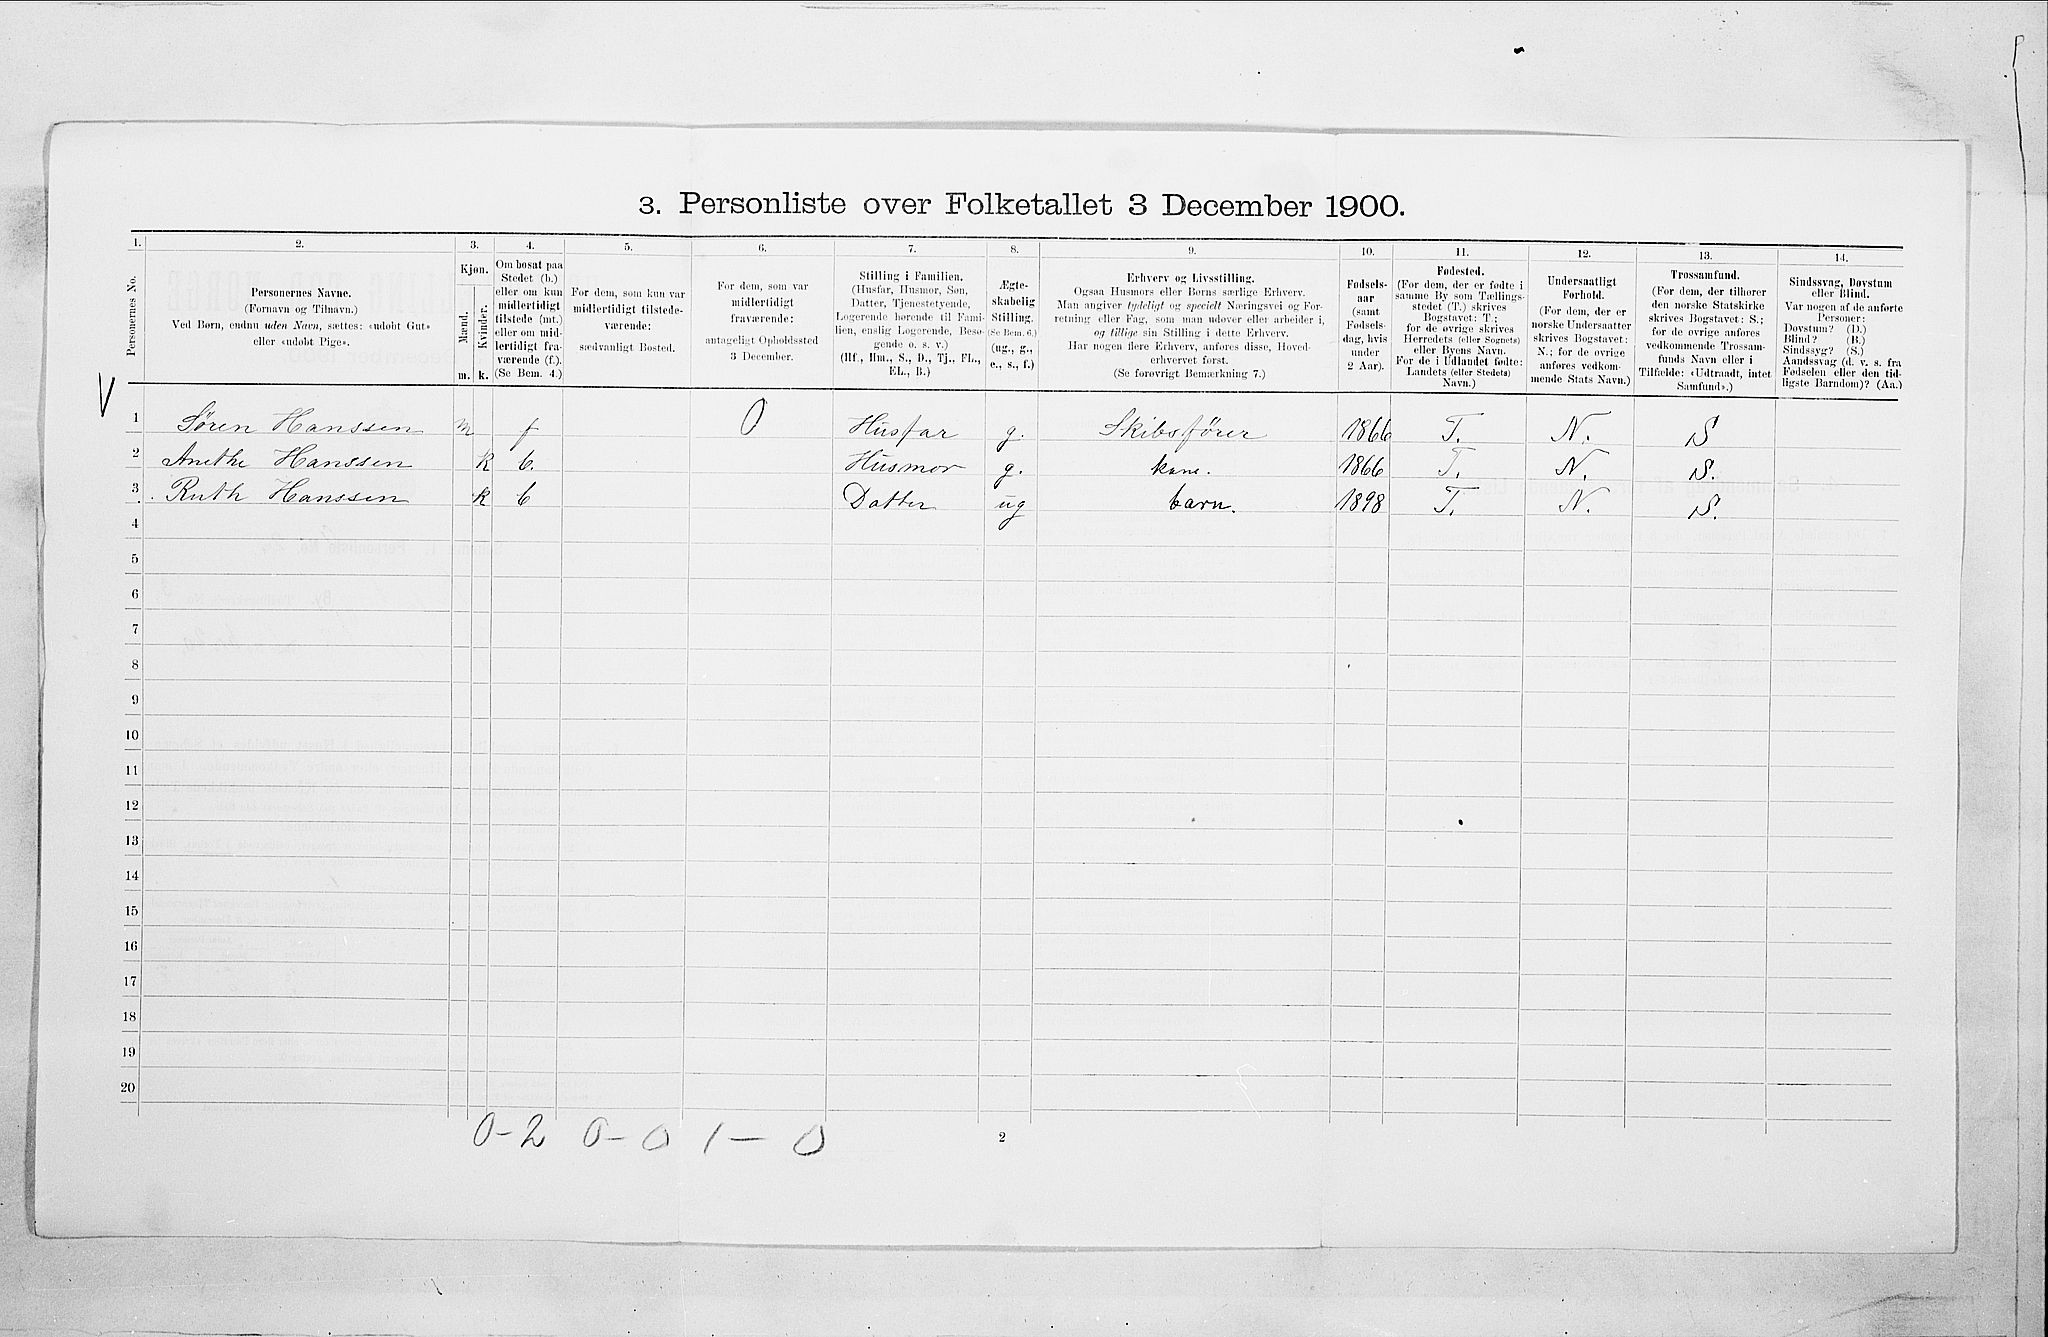 3. Personliste over Folketallet 3 December 1900.
1. 2. 3. 4. 5. 6. 7. 8. 9. 10. 11. 12. 13. 14.
Personernes No.
Personernes Navne.
(Fornavn og Tilnavn.)
Ved Børn, endnu uden Navn, sættes: «udøbt Gut»
eller «udøbt Pige».
Kjøn.
Mænd.
Kvinder.
m. k.
Om bosat paa
Stedet (b.)
eller om kun
midlertidigt
tilstede (mt.)
eller om mid-
lertidigt fra-
værende (f.).
(Se Bem. 4.)
For dem, som kun var
midlertidigt tilstede-
værende:
sædvanligt Bosted.
For dem, som var
midlertidigt
fraværende:
antageligt Opholdssted
3 December.
Stilling i Familien.
(Husfar, Husmor, Søn,
Datter, Tjenestetyende,
Logerende hørende til Fami-
lien, enslig Logerende, Besø-
gende o. s. v.)
(Hf., Hm., S., D., Tj., FL.,
EL., B.)
Ægte-
skabelig
Stilling.
(Se Bem. 6.)
(ug., g.,
e., s., f.)
Erhverv og Livsstilling.
Ogsaa Husmors eller Børns særlige Erhverv.
Man angiver tydeligt og specielt Næringsvei og For-
retning eller Fag, som man udøver eller arbeider i,
og tillige sin Stilling i dette Erhverv.
Har nogen flere Erhverv, anføres disse, Hoved-
erhvervet først.
(Se forøvrigt Bemærkning 7.)
Fødsels-
aar
(samt
Fødsels-
dag, hvis
under
2 Aar).
Fødested.
(For dem, der er fødte i
samme By som Tællings-
stedet (T.) skrives
Bogstavet: T.;
for de øvrige skrives
Herredets (eller Sognets)
eller Byens Navn.
For de i Udlandet fødte:
Landets (eller Stedets)
Navn.)
Undersaatligt
Forhold.
(For dem, der er
norske Undersaatter
skrives Bogstavet:
N.; for de øvrige
anføres vedkom-
mende Stats Navn.)
Trossamfund.
(For dem, der tilhører
den norske Statskirke
skrives Bogstavet: S.;
for de øvrige anføres
vedkommende Trossam-
funds Navn eller i
Tilfælde: «Udtraadt, intet
Samfund».)
Sindssvag, Døvstum
eller Blind.
Var nogen af de anførte
Personer:
Døvstum? (D.)
Blind? (B.)
Sindssyg? (S.)
Aandssvag (d. v. s. fra
Fødselen eller den tid-
ligste Barndom)? (Aa.)
V
1 Søren Hanssen m f 0 Husfar g. Skibsfører 1866 T. N. S
2 Anethe Hanssen k b. Husmor g. kone. 1866 T. N. S.
3 Ruth Hanssen k b Datter ug barn. 1898 T. N. S.
4
5
6
7
8
9
10
11
12
13
14
15
16
17
18
19
20
0-2 0-0 1-0
2